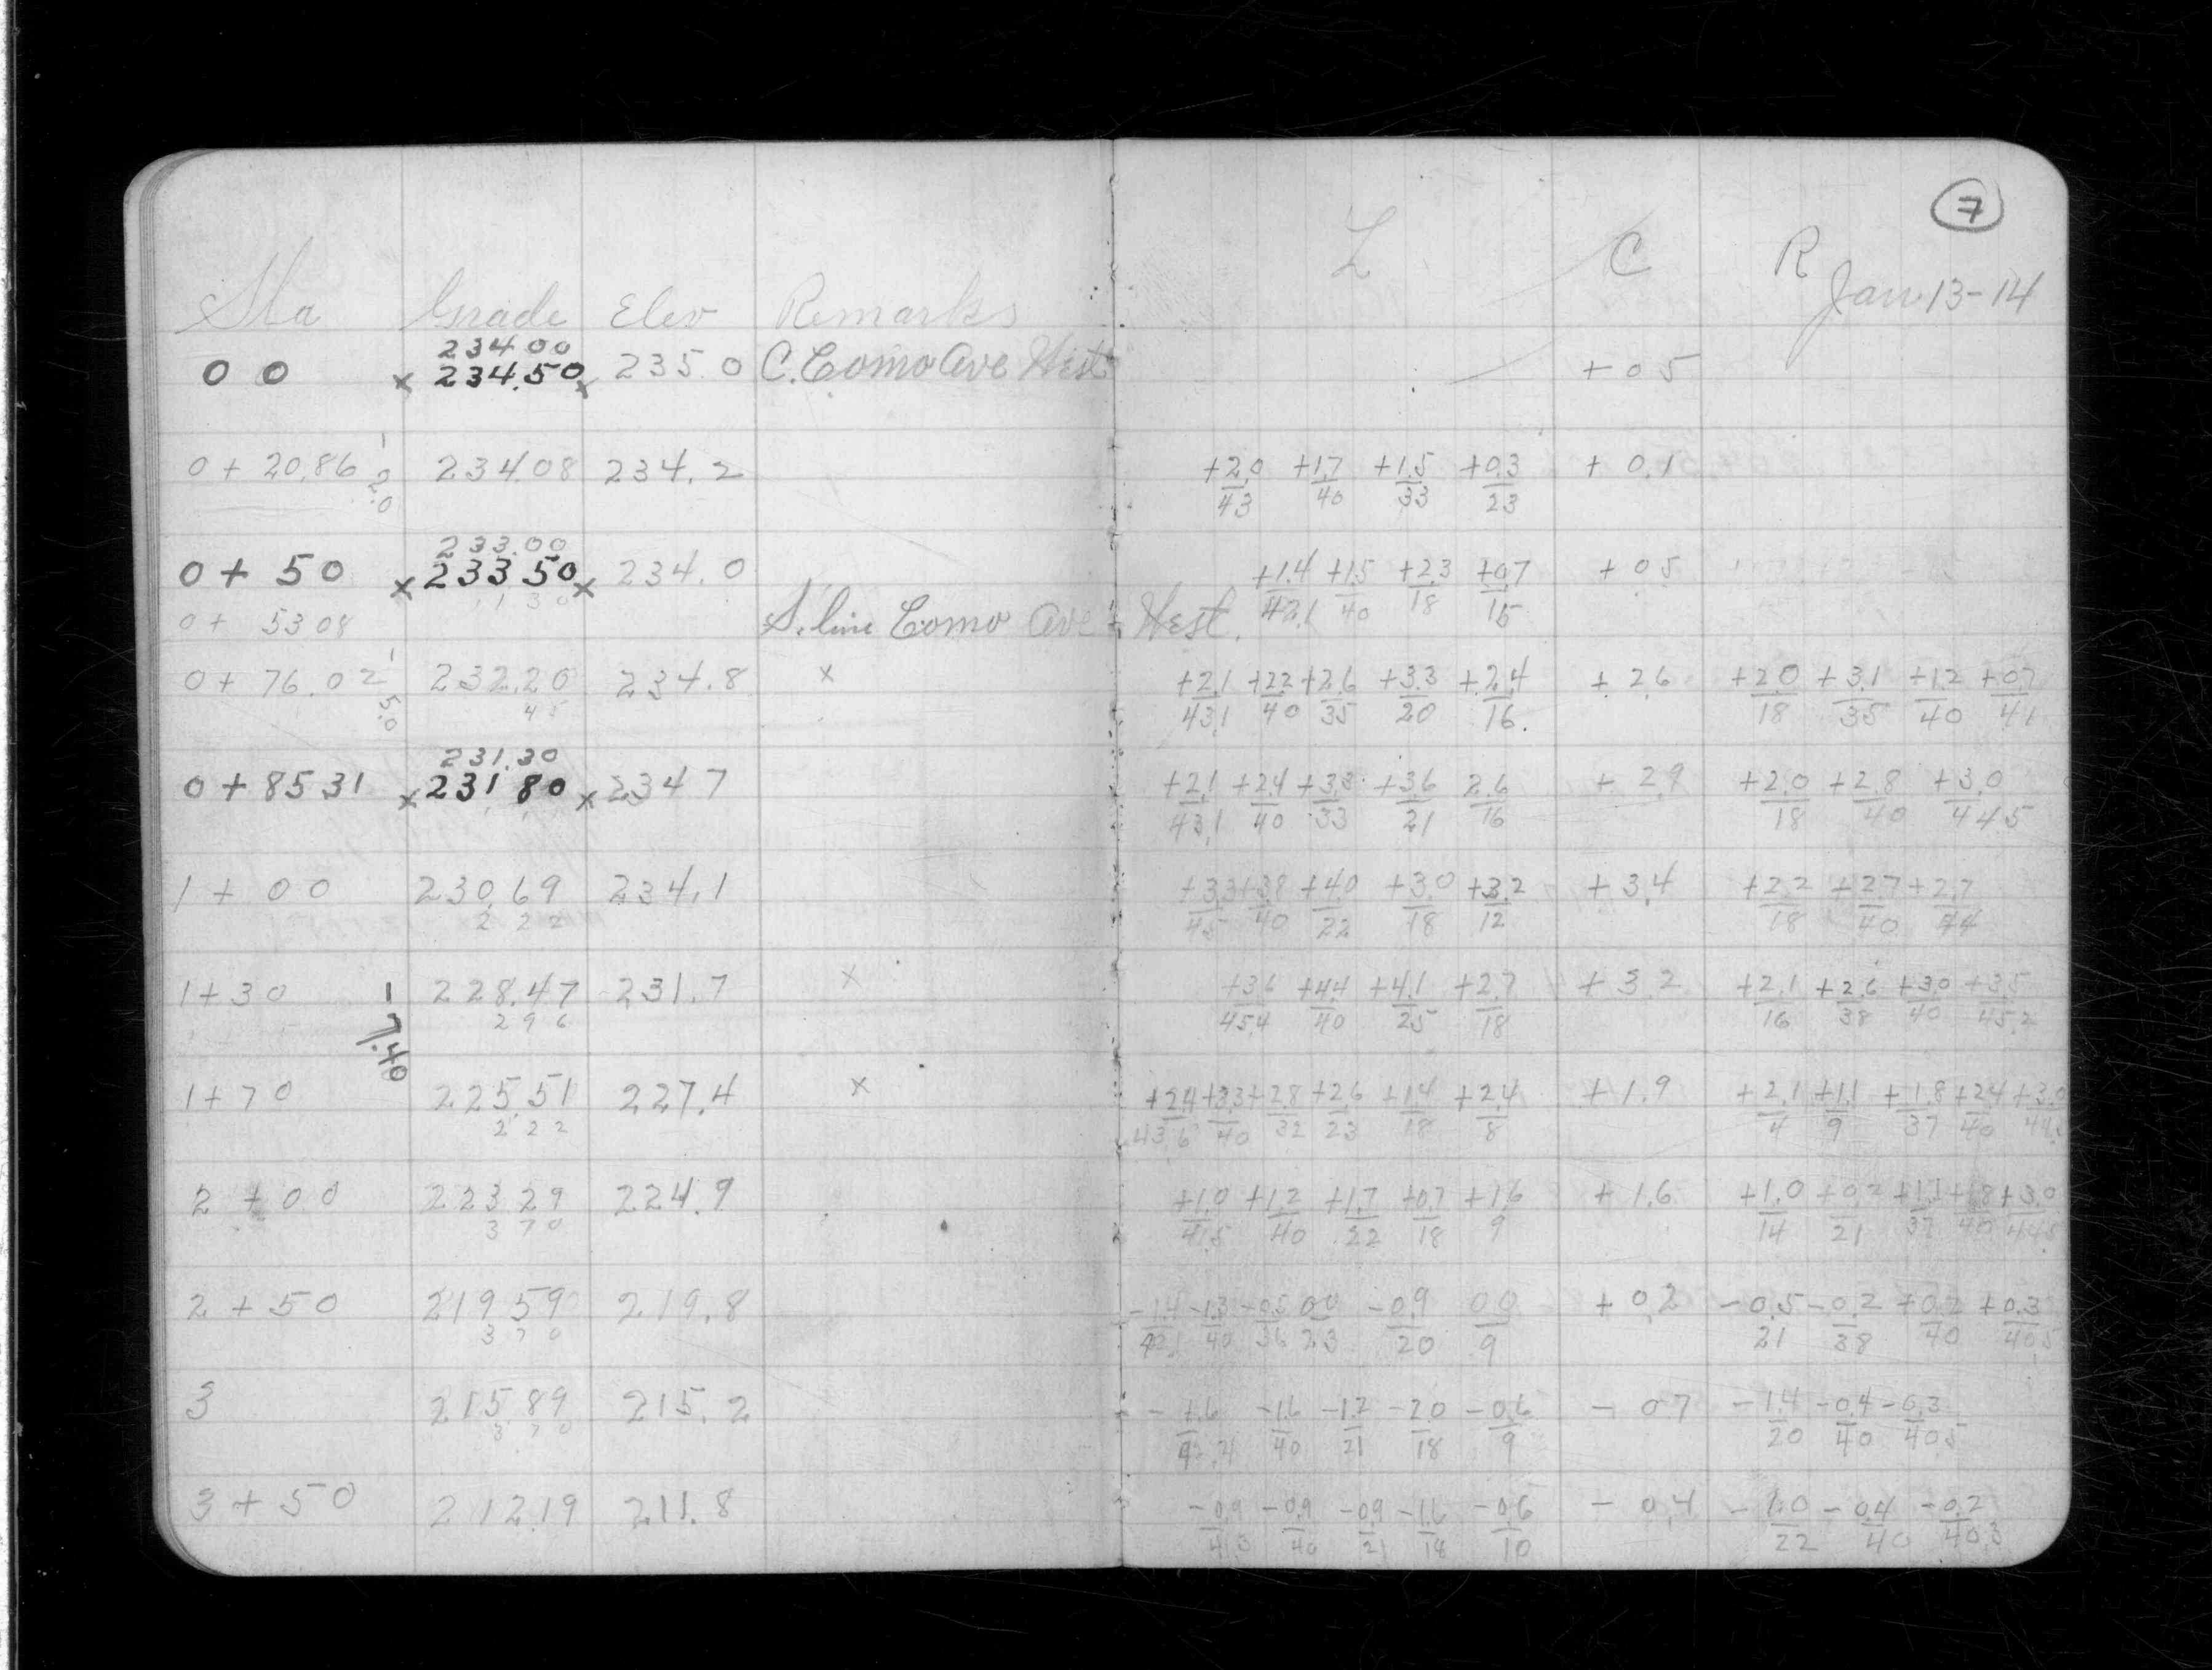 7
L C R
Jan 13-14
Sta Grade Elev Remarks
234 00
0 0 x 234.50 x 235.0 C. Como Ave West + 0 5
0 + 20.86 -2.0 234.08 234.2 +2.0/43 +1.7/40 +1.5/33 +0.3/23 + 0.1
233.00
0 + 50 x 233 50 x 234.0 +1.4/42.1 +1.5/40 +2.3/18 +0.7/15 + 0.5
1 3 0
0 + 53 08 S. line Como Ave West.
0 + 76.02 -5.0 232.20 234.8 x +2.1/43.1 +2.2/40 +2.6/35 +3.3/20 +2.4/16. + 2.6 +2.0/18 +3.1/35 +1.2/40 +0.7/41
4 5
231.30
0 + 85 31 x 231 80 x 234 7 +2.1/43.1 +2.4/40 +3.3/33 +3.6/21 2.6/16 + 2.9 +2.0/18 +2.8/40 +3.0/44.5
1 + 00 230.69 234.1 +3.3/45 +3.8/40 +4.0/22 +3.0/18 +3.2/12 + 3.4 +2.2/18 +2.7/40 +2.7/44
2 2 2
1 + 30 -7.40 228.47 231.7 x +3.6/45.4 +4.4/40 +4.1/25 +2.7/18 + 3.2 +2.1/16 +2.6/38 +3.0/40 +3.5/45.2
2 9 6
1 + 70 225.51 227.4 x +2.4/43.6 +3.3/40 +2.8/32 +2.6/23 +1.4/18 +2.4/8 + 1.9 +2.1/4 +1.1/9 +1.8/37 +2.4/40
2 2 2
2 + 00 223 29 224.9 +1.0/41.5 +1.2/40 +1.7/22 +0.7/18 +1.6/9 + 1.6 +1.0/14 +0.2/21 +1.1/37 +1.8/40 +3.0/44.5
3 7 0
2 + 50 219 59 219.8 -1.4/42.1 -1.3/40 -0.5/36 0.0/23 -0.9/20 0.0/9 + 0.2 -0.5/21 -0.2/38 +0.2/40 +0.3/40.5
3 7 0
3 215.89 215.2 -1.6/42.4 -1.6/40 -1.2/21 -2.0/18 -0.6/9 - 0.7 -1.4/20 -0.4/40 -0.3/40.5
3 7 0
3 + 50 212.19 211.8 -0.9 -0.9/40 -0.9/21 -1.6/18 -0.6/10 - 0.4 -1.0/22 -0.4/40 -0.2/40.3